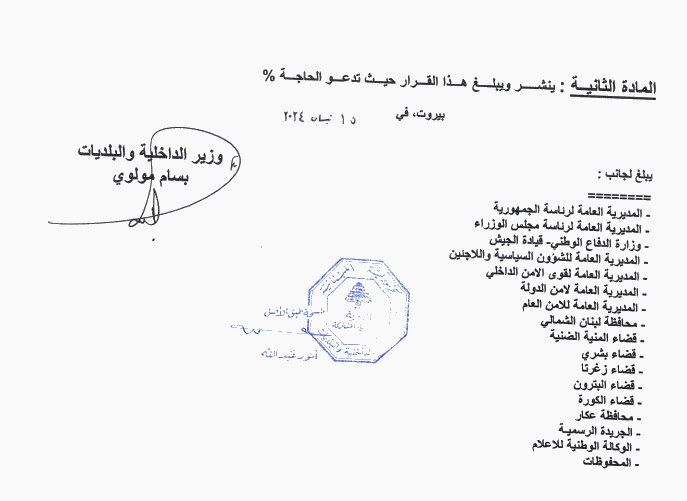 المادة الثانيــة : ينشـــر ويبلـــغ هـذا القـرار حيـث تدعـو الحاجـة %
بيروت، في ١٥ نيسان ٢٠٢٤
وزير الداخلية والبلديات
بسام مولوي
يبلغ لجانب :
========
- المديرية العامة لرئاسة الجمهورية
- المديرية العامة لرئاسة مجلس الوزراء
- وزارة الدفاع الوطني- قيادة الجيش
- المديرية العامة للشؤون السياسية واللاجئين
- المديرية العامة لقوى الامن الداخلي
- المديرية العامة لامن الدولة
- المديرية العامة للامن العام
- محافظة لبنان الشمالي
- قضاء المنية الضنية
- قضاء بشري
- قضاء زغرتا
- قضاء البترون
- قضاء الكورة
- محافظة عكار
- الجريدة الرسمية
- الوكالة الوطنية للاعلام
- المحفوظات
نسخة طبق الأصل
أنور عبد الله